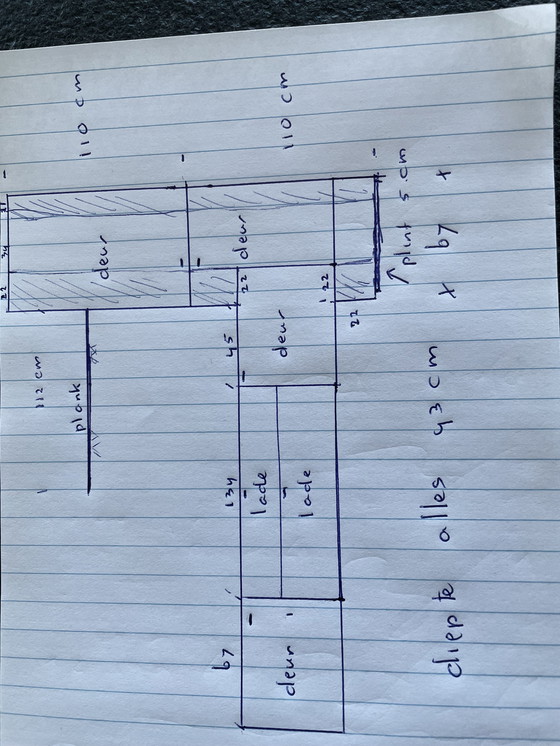 22 34 21
112 cm
plank
110 cm
deur
67 134 45 22
deur
lade
deur
110 cm
deur
lade
22
22
plint 5 cm
x 67 x
diepte alles 43 cm